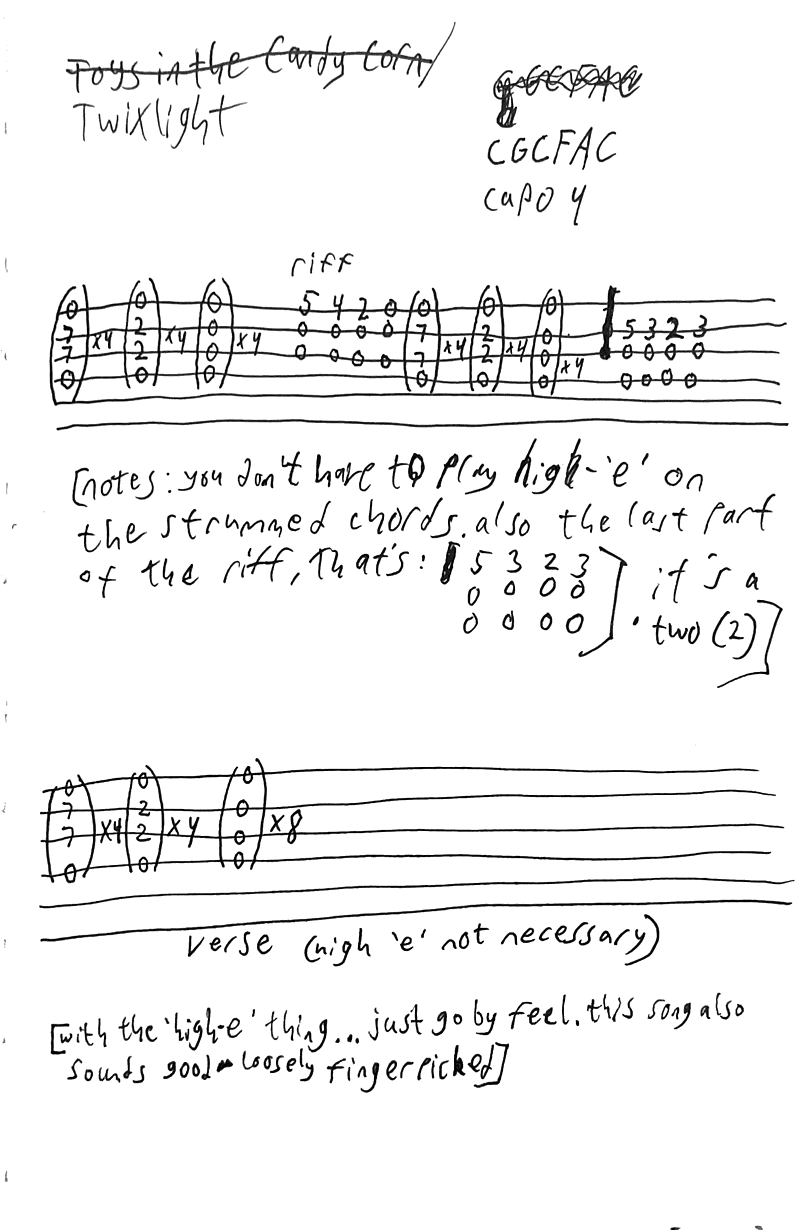 Toys in the Candy Corn/
Twixlight
CGCFAC
capo 4
riff
0 0 0 5 4 2 0 0 0 0
7 2 0 0 0 0 0 7 2 0 5 3 2 3
x4 x4 x4 x4 x4
7 2 0 0 0 0 0 7 2 0 0 0 0 0
x4
0 0 0 0 0 0 0 0 0 0
[notes: you don't have to play high-'e' on
the strummed chords. also the last part
of the riff, that's: 5 3 2 3 ] it's a
0 0 0 0
0 0 0 0 · two (2)]
0 0 0
7 2 0
x4 x4 x8
7 2 0
0 0 0
verse (high 'e' not necessary)
[with the 'high-e' thing... just go by feel. this song also
sounds good loosely fingerpicked]